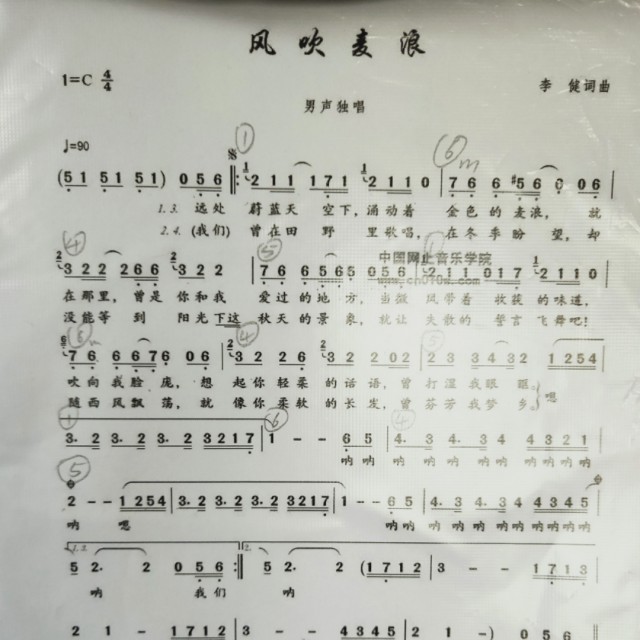 风吹麦浪
1=C 4/4
李健词曲
男声独唱
♩=90
①
⑥m
(51 51 51) 056 2 11 171 2110 76 6 #56 0 06
1.3. 远处 蔚蓝天 空下,涌动着 金色的麦浪, 就
2.4. (我们) 曾在田 野里歌唱, 在冬季盼望, 却
④
⑤
322 266 32 2 76 6565 056 2 11 017 2110
中国网上音乐学院
在那里,曾是 你和我 爱过的地方,当微 风带着 收获的味道,
没能等到 阳光下这 秋天的景象,就让 失散的 誓言飞舞吧!
④
⑤
76 6676 06 32 26 32 202 23 3432 1254
吹向我脸庞, 想起你轻柔的话语,曾打湿我眼眶 嗯
随西风飘荡, 就像你柔软的长发,曾芬芳我梦乡
①
⑥
④
3·2 3·2 3·2 3217 1 - - 65 4·3 4·3 34 4321
呐呐 呐 呐 呐呐 呐呐
⑤
2 - - 1254 3·2 3·2 3·2 3217 1 - - 65 4·3 4·3 34 4345
呐 嗯 呐呐 呐 呐 呐呐 呐呐呐呐
1.2.
2.
5 2· 2 056 5 2· 2 (1712 3 - - 1713
呐 我们 呐
2 1 - 1712 3 - - 4345 2 1 -) 056